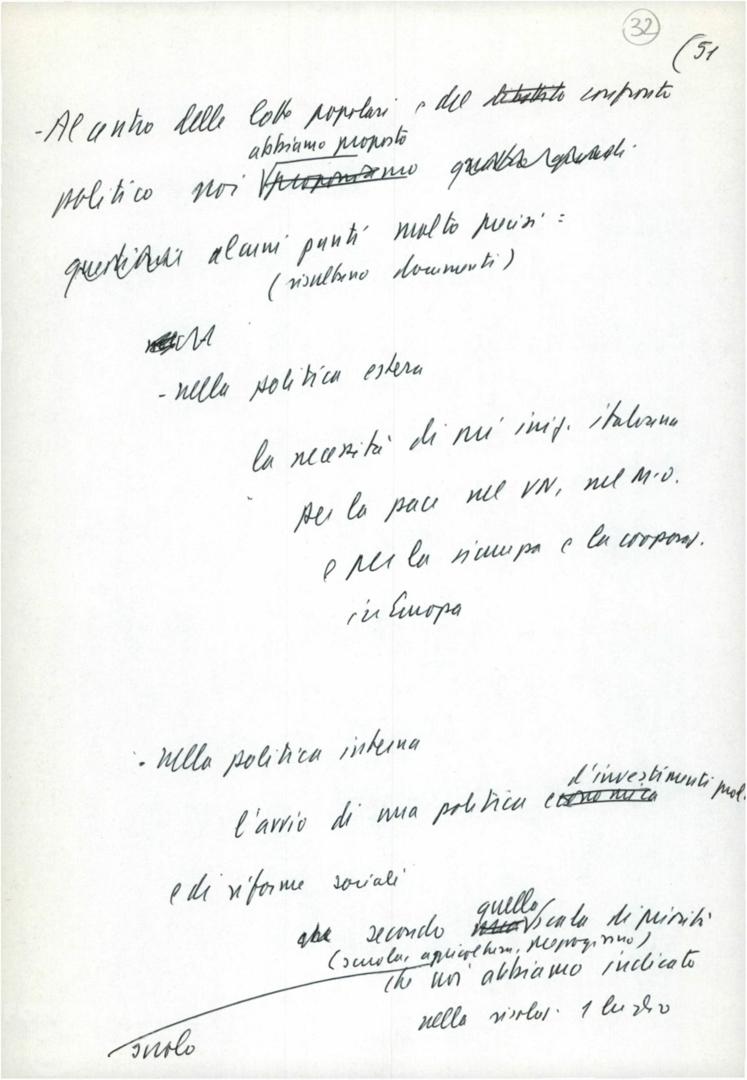 32
(51
- Al centro delle lotte popolari e del dibattito confronto
abbiamo proposto
politico noi proponiamo
questioni alcuni punti molto precisi:
(risultano documenti)
- nella politica estera
la necessità di un' iniz. italiana
per la pace nel VN, nel M.O.
e per la sicurezza e la cooperaz.
in Europa
- nella politica interna
d'investimenti prod.
l'avvio di una politica economica
e di riforme sociali
quella
che secondo una scala di priorità
(scuola, agricoltura, mezzogiorno)
che noi abbiamo indicato
nella risoluz. 1 luglio
suolo